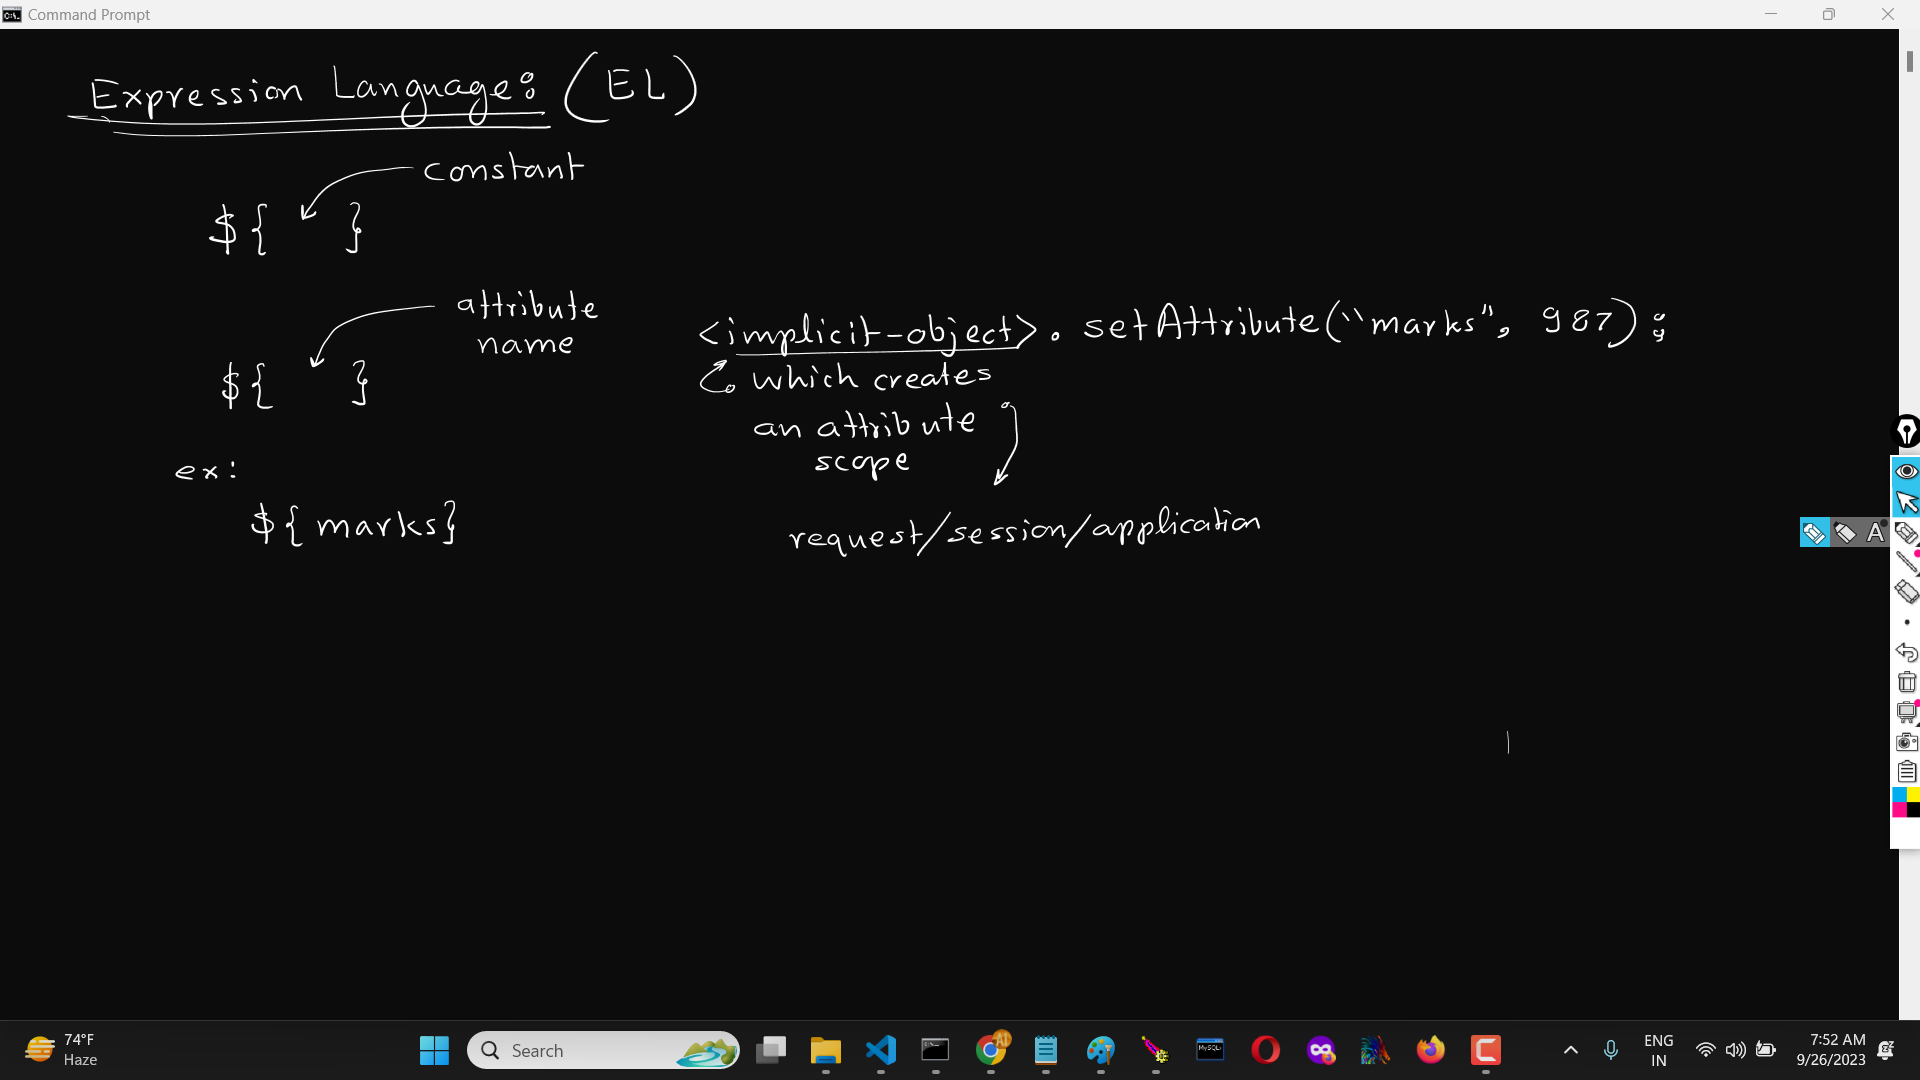 Command Prompt
Expression Language: (EL)
constant
${ }
attribute
name
${ }
<implicit-object>. setAttribute("marks", 987);
which creates
an attribute
scope
request/session/application
ex:
${marks}
A
74°F
Haze
Search
AI
MySQL
ENG
IN
7:52 AM
9/26/2023